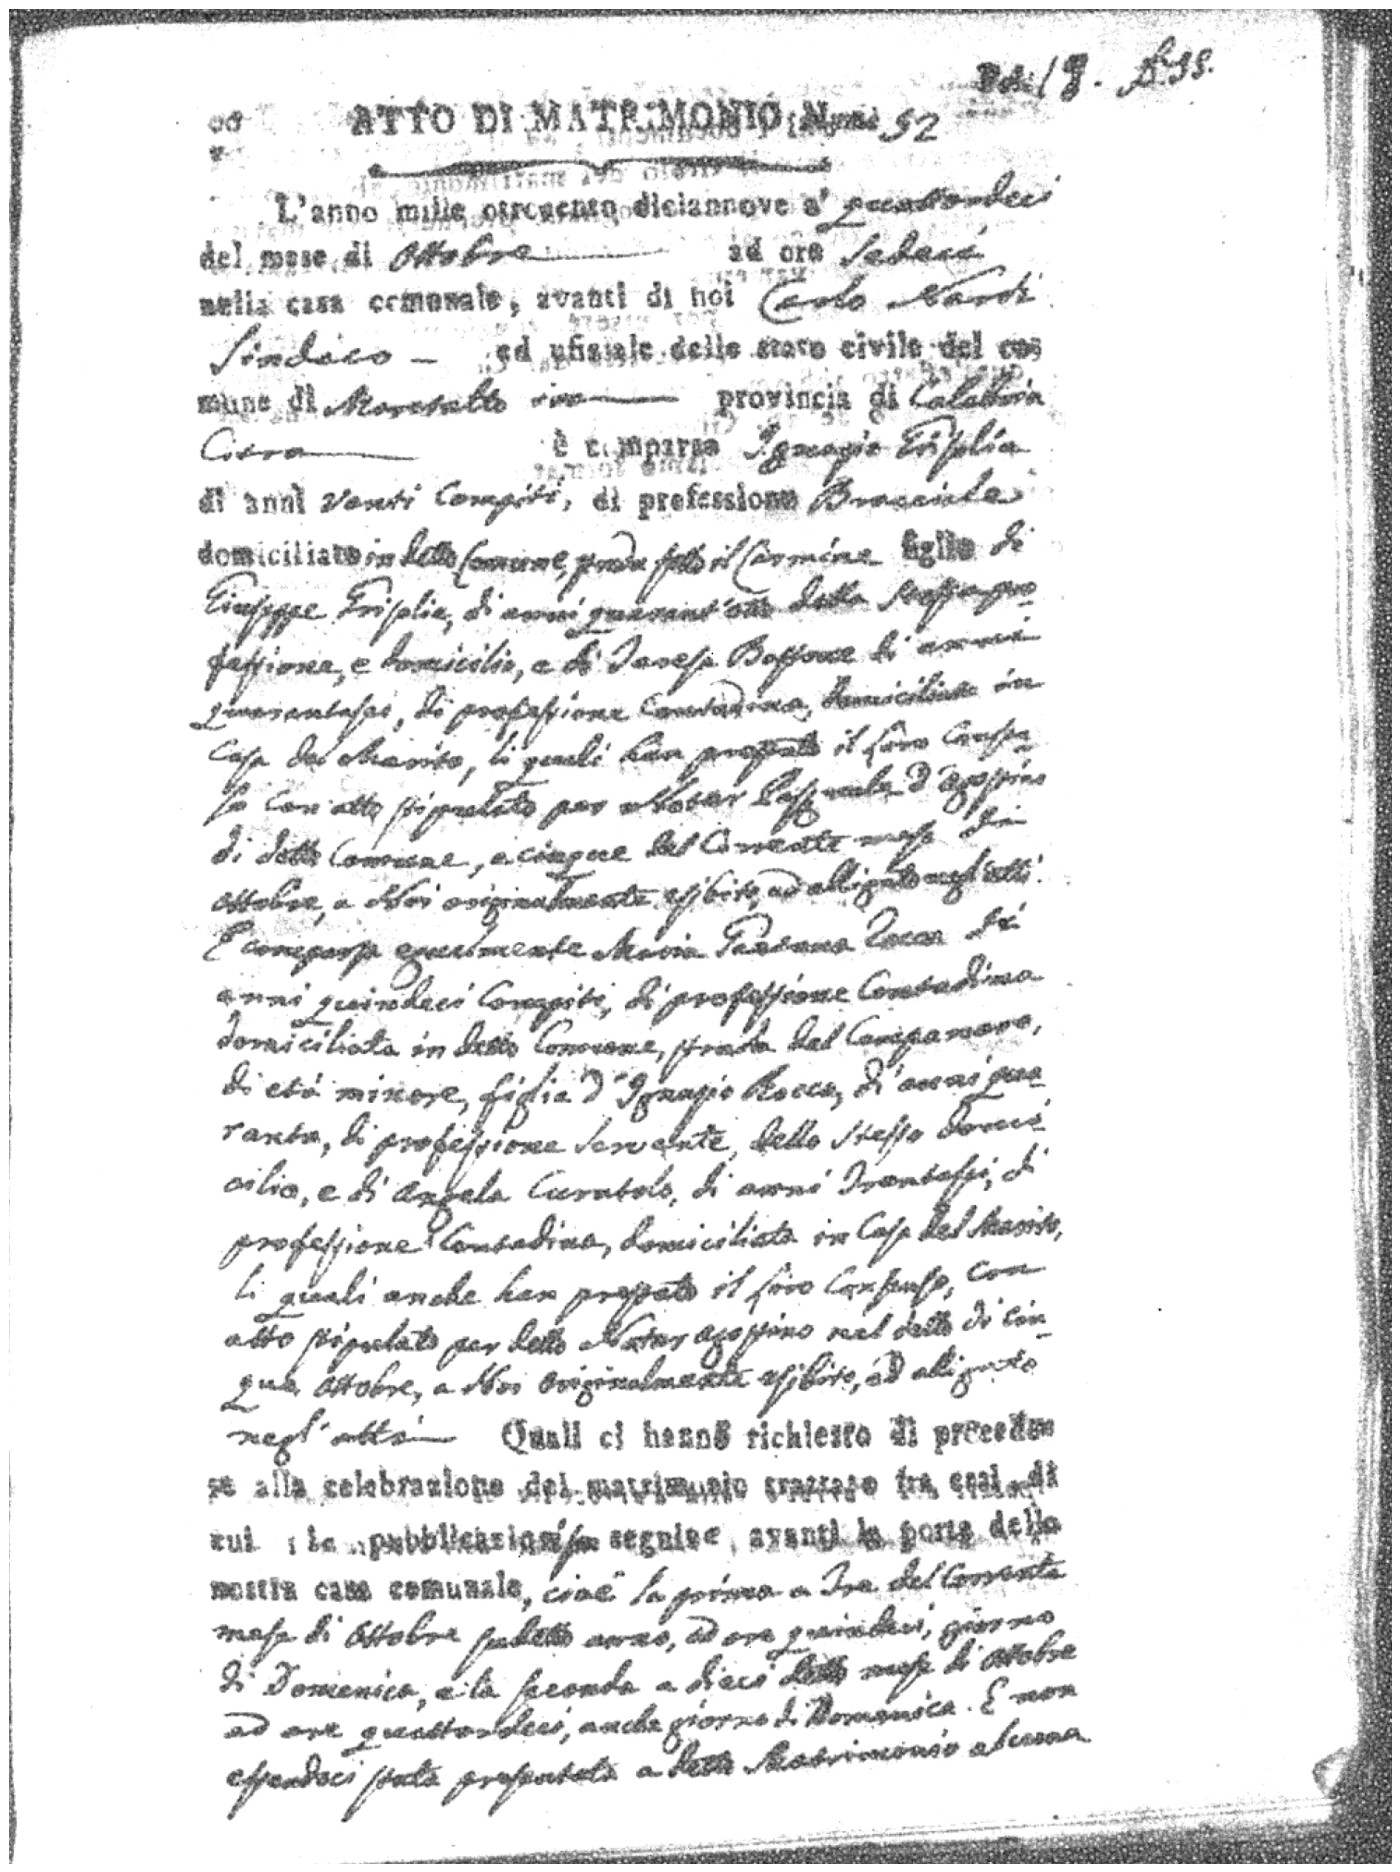 ATTO DI MATRIMONIO Num. 52
L'anno mille ottocento diciannove a' quattordeci
del mese di Ottobre ad ore Sedeci
nella casa comunale, avanti di noi Carlo Nardi
Sindaco ed ufiziale dello stato civile del co=
mune di Montalto provincia di Calabria
Citra è comparso Ignazio Trifilia
di anni Venti Compiti, di professione Bracciale
domiciliato in detto Comune, strada detto il Carmine figlio di
Giuseppe Trifilia, di anni quarant'otto della stessa pro=
fessione, e domicilio, e di Teresa Bossone di anni
quarantasei, di professione Contadina, domiciliata in
Casa del Marito, li quali han prestato il loro Consen=
so con atto stipulato per Notar Pasquale d'Agostino
di detto Comune, a cinque del Corrente mese di
Ottobre, a Noi originalmente esibito, ed alligato negl'atti.
È comparsa egualmente Maria Gaetana Rocca di
anni quindeci Compiti, di professione Contadina
domiciliata in detto Comune, strada del Campanaro,
di età minore, figlia d'Ignazio Rocca, di anni qua=
ranta, di professione Servente, dello stesso domi=
cilio, e di Angela Curatolo, di anni Trentasei, di
professione Contadina, domiciliata in Casa del Marito,
li quali anche han prestato il loro Consenso, con
atto stipulato per detto Notar Agostino nel detto dì cin=
que Ottobre, a Noi originalmente esibito, ed alligato
negl'atti Quali ci hanno richiesto di procede=
re alla celebrazione del matrimonio trattato fra essi di
cui le pubblicazioni son seguite avanti la porta della
nostra casa comunale, cioè la prima a Tre del Corrente
mese di Ottobre sudetto anno, ad ore quindeci, giorno
di Domenica, e la seconda a dieci detto mese di Ottobre
ad ore quattordeci, anche giorno di Domenica. E non
essendoci stata presentata a detto Matrimonio alcuna